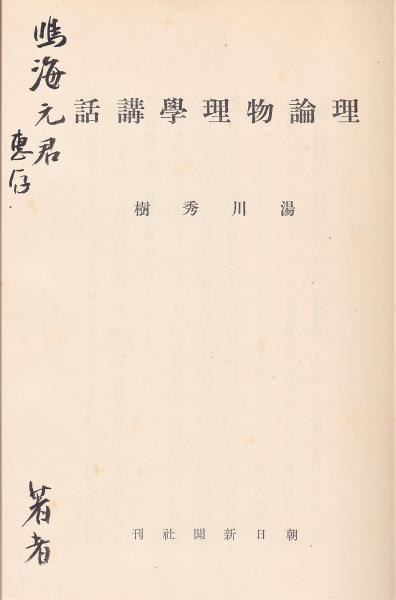 理論物理學講話
湯川秀樹
朝日新聞社刊
鳴海元君
惠存
著者